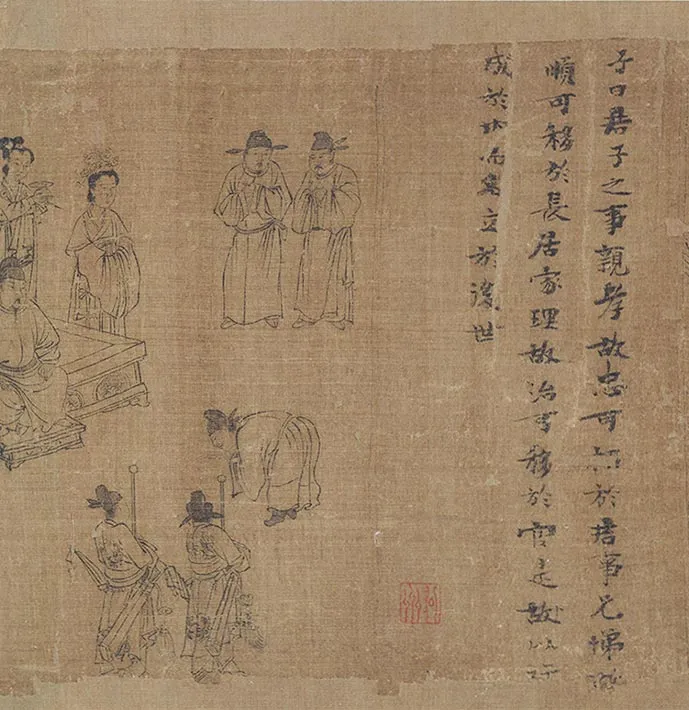 子曰君子之事親孝故忠可於君事兄悌故
順可移於長居家理故治可移於官是故以行
成於內而名立於後世